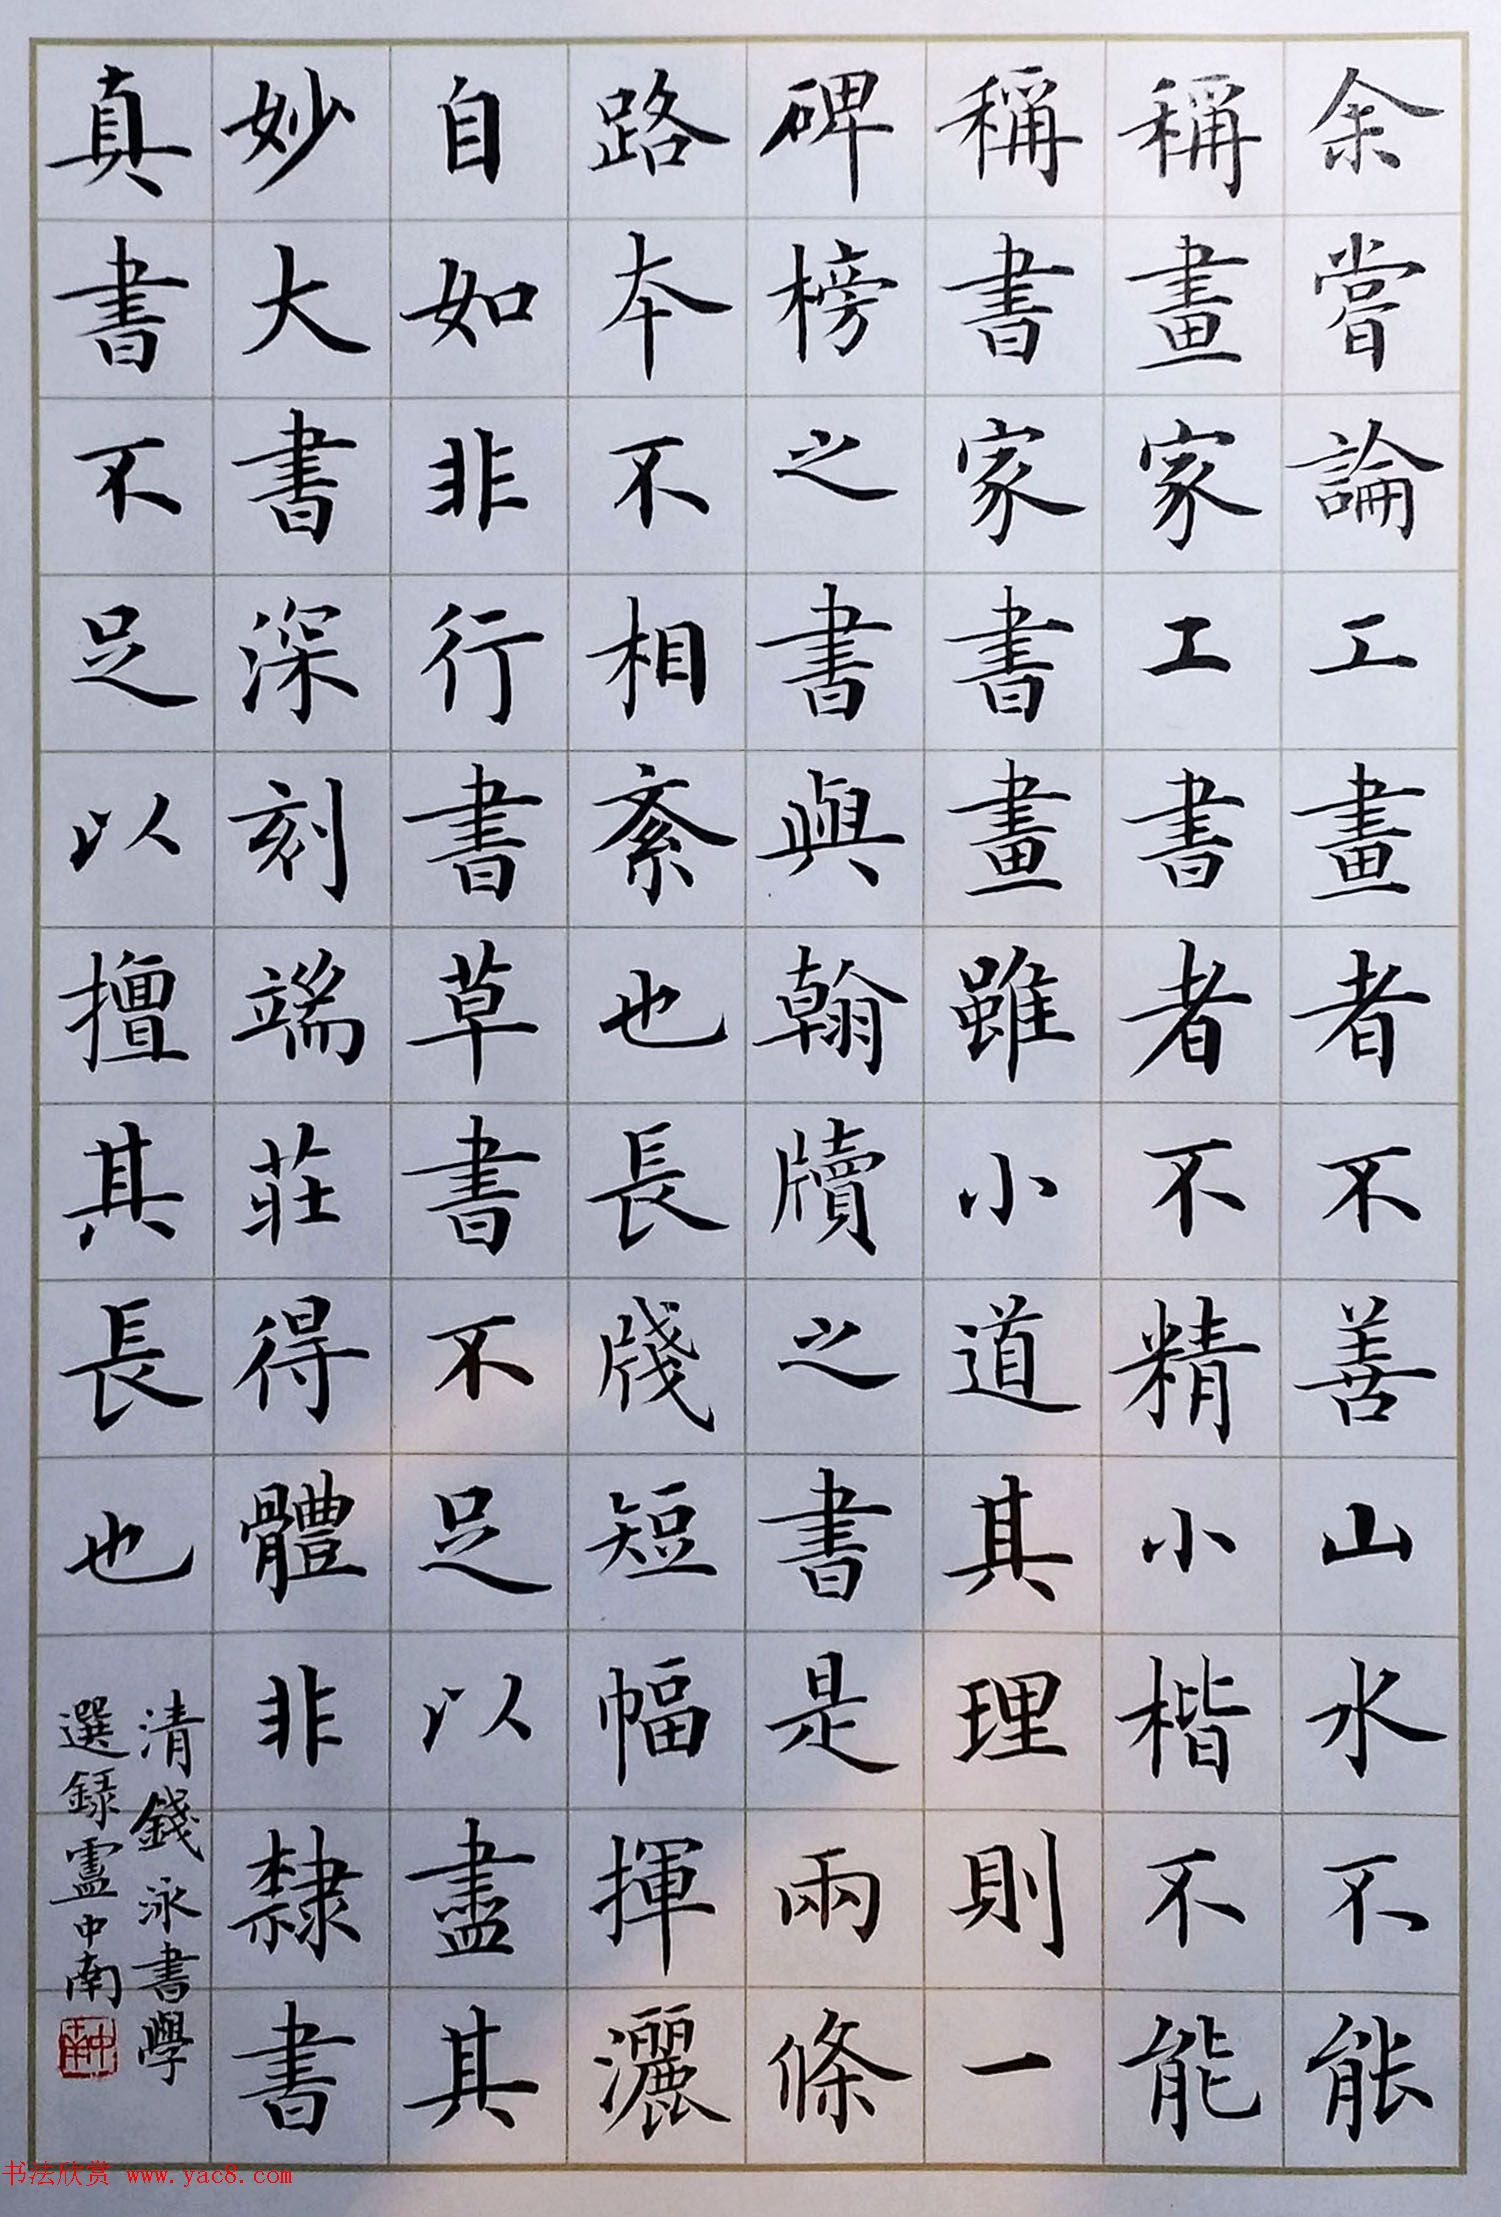 余嘗論工畫者不善山水不能
稱畫家工書者不精小楷不能
稱書家書畫雖小道其理則一
碑榜之書與翰牘之書是兩條
路本不相紊也長牋短幅揮灑
自如非行書草書不足以盡其
妙大書深刻端莊得體非隸書
真書不足以擅其長也
清錢泳書學
選録盧中南
中南
书法欣赏 www.yac8.com